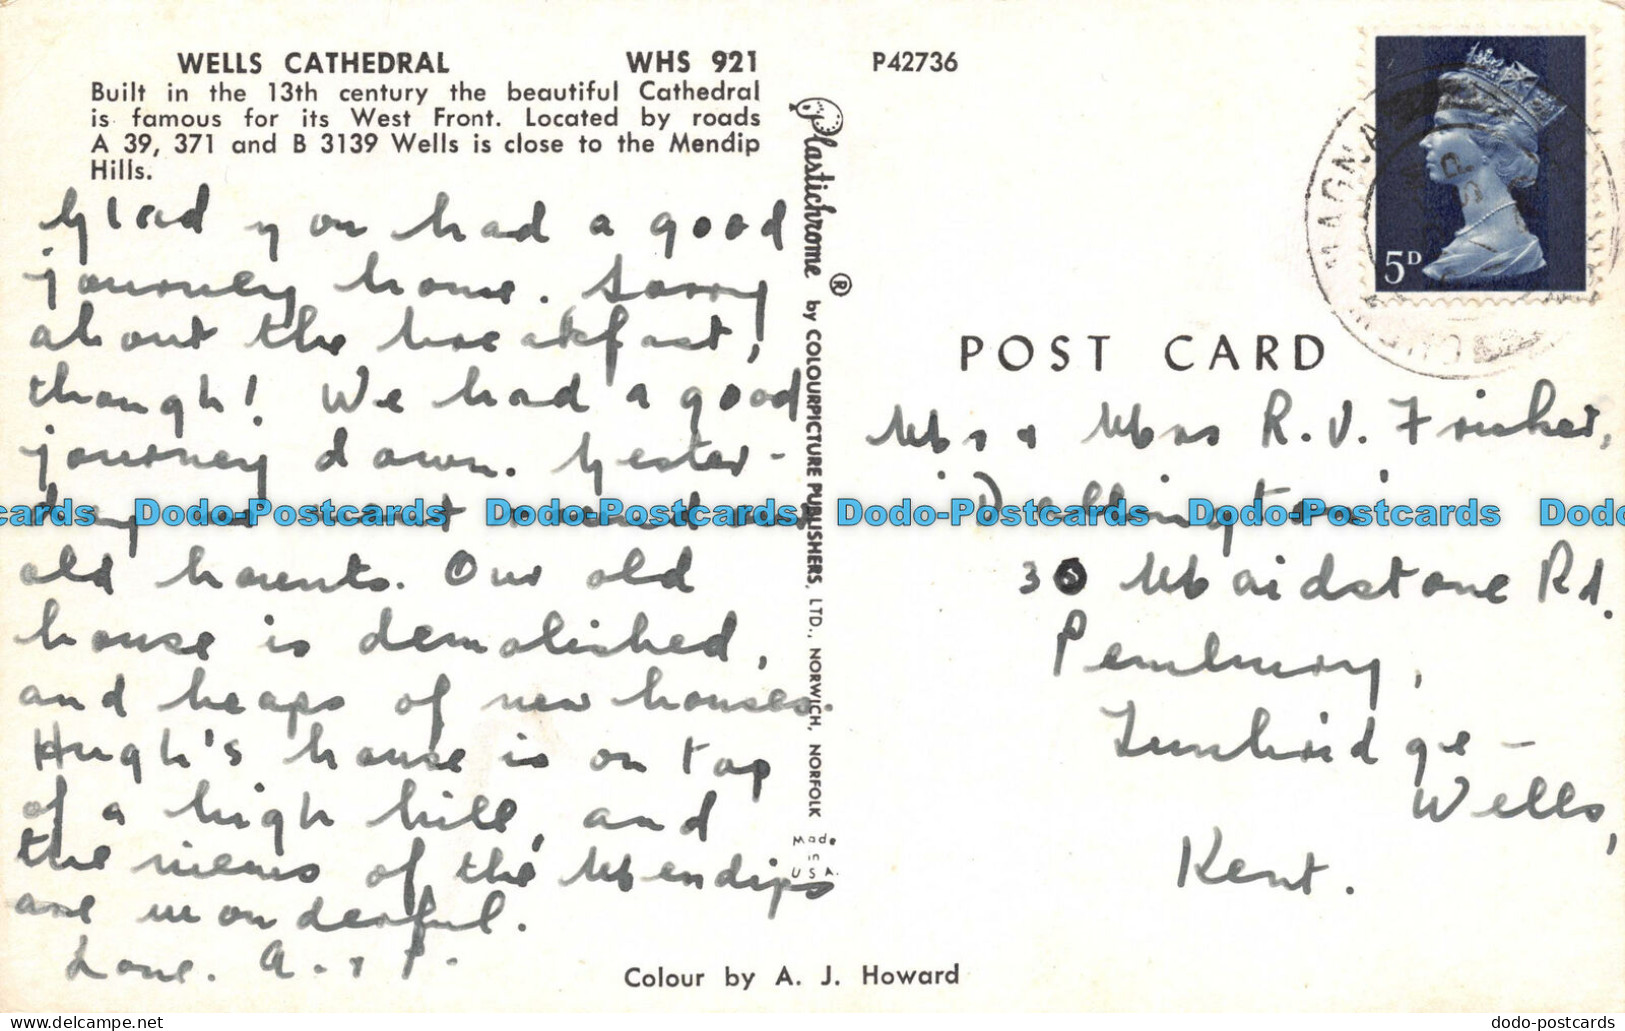 WELLS CATHEDRAL WHS 921
Built in the 13th century the beautiful Cathedral
is famous for its West Front. Located by roads
A 39, 371 and B 3139 Wells is close to the Mendip
Hills.
Glad you had a good
journey home. Sorry
about the breakfast,
though! We had a good
journey down. Yester-
day we went round
old haunts. Our old
house is demolished,
and heaps of new houses.
Hugh's house is on top
of a high hill, and
the views of the Mendips
are wonderful.
Love. A. & P.
Plastichrome ® by COLOURPICTURE PUBLISHERS, LTD., NORWICH, NORFOLK
Made
in
U.S.A.
P42736
5D
MAGNA
POST CARD
Mr & Mrs R. V. Fricker,
'Dallington'
30 Maidstone Rd.
Pembury,
Tunbridge-
Wells,
Kent.
Colour by A. J. Howard
Dodo-Postcards Dodo-Postcards Dodo-Postcards Dodo-Postcards
dodo-postcards.com